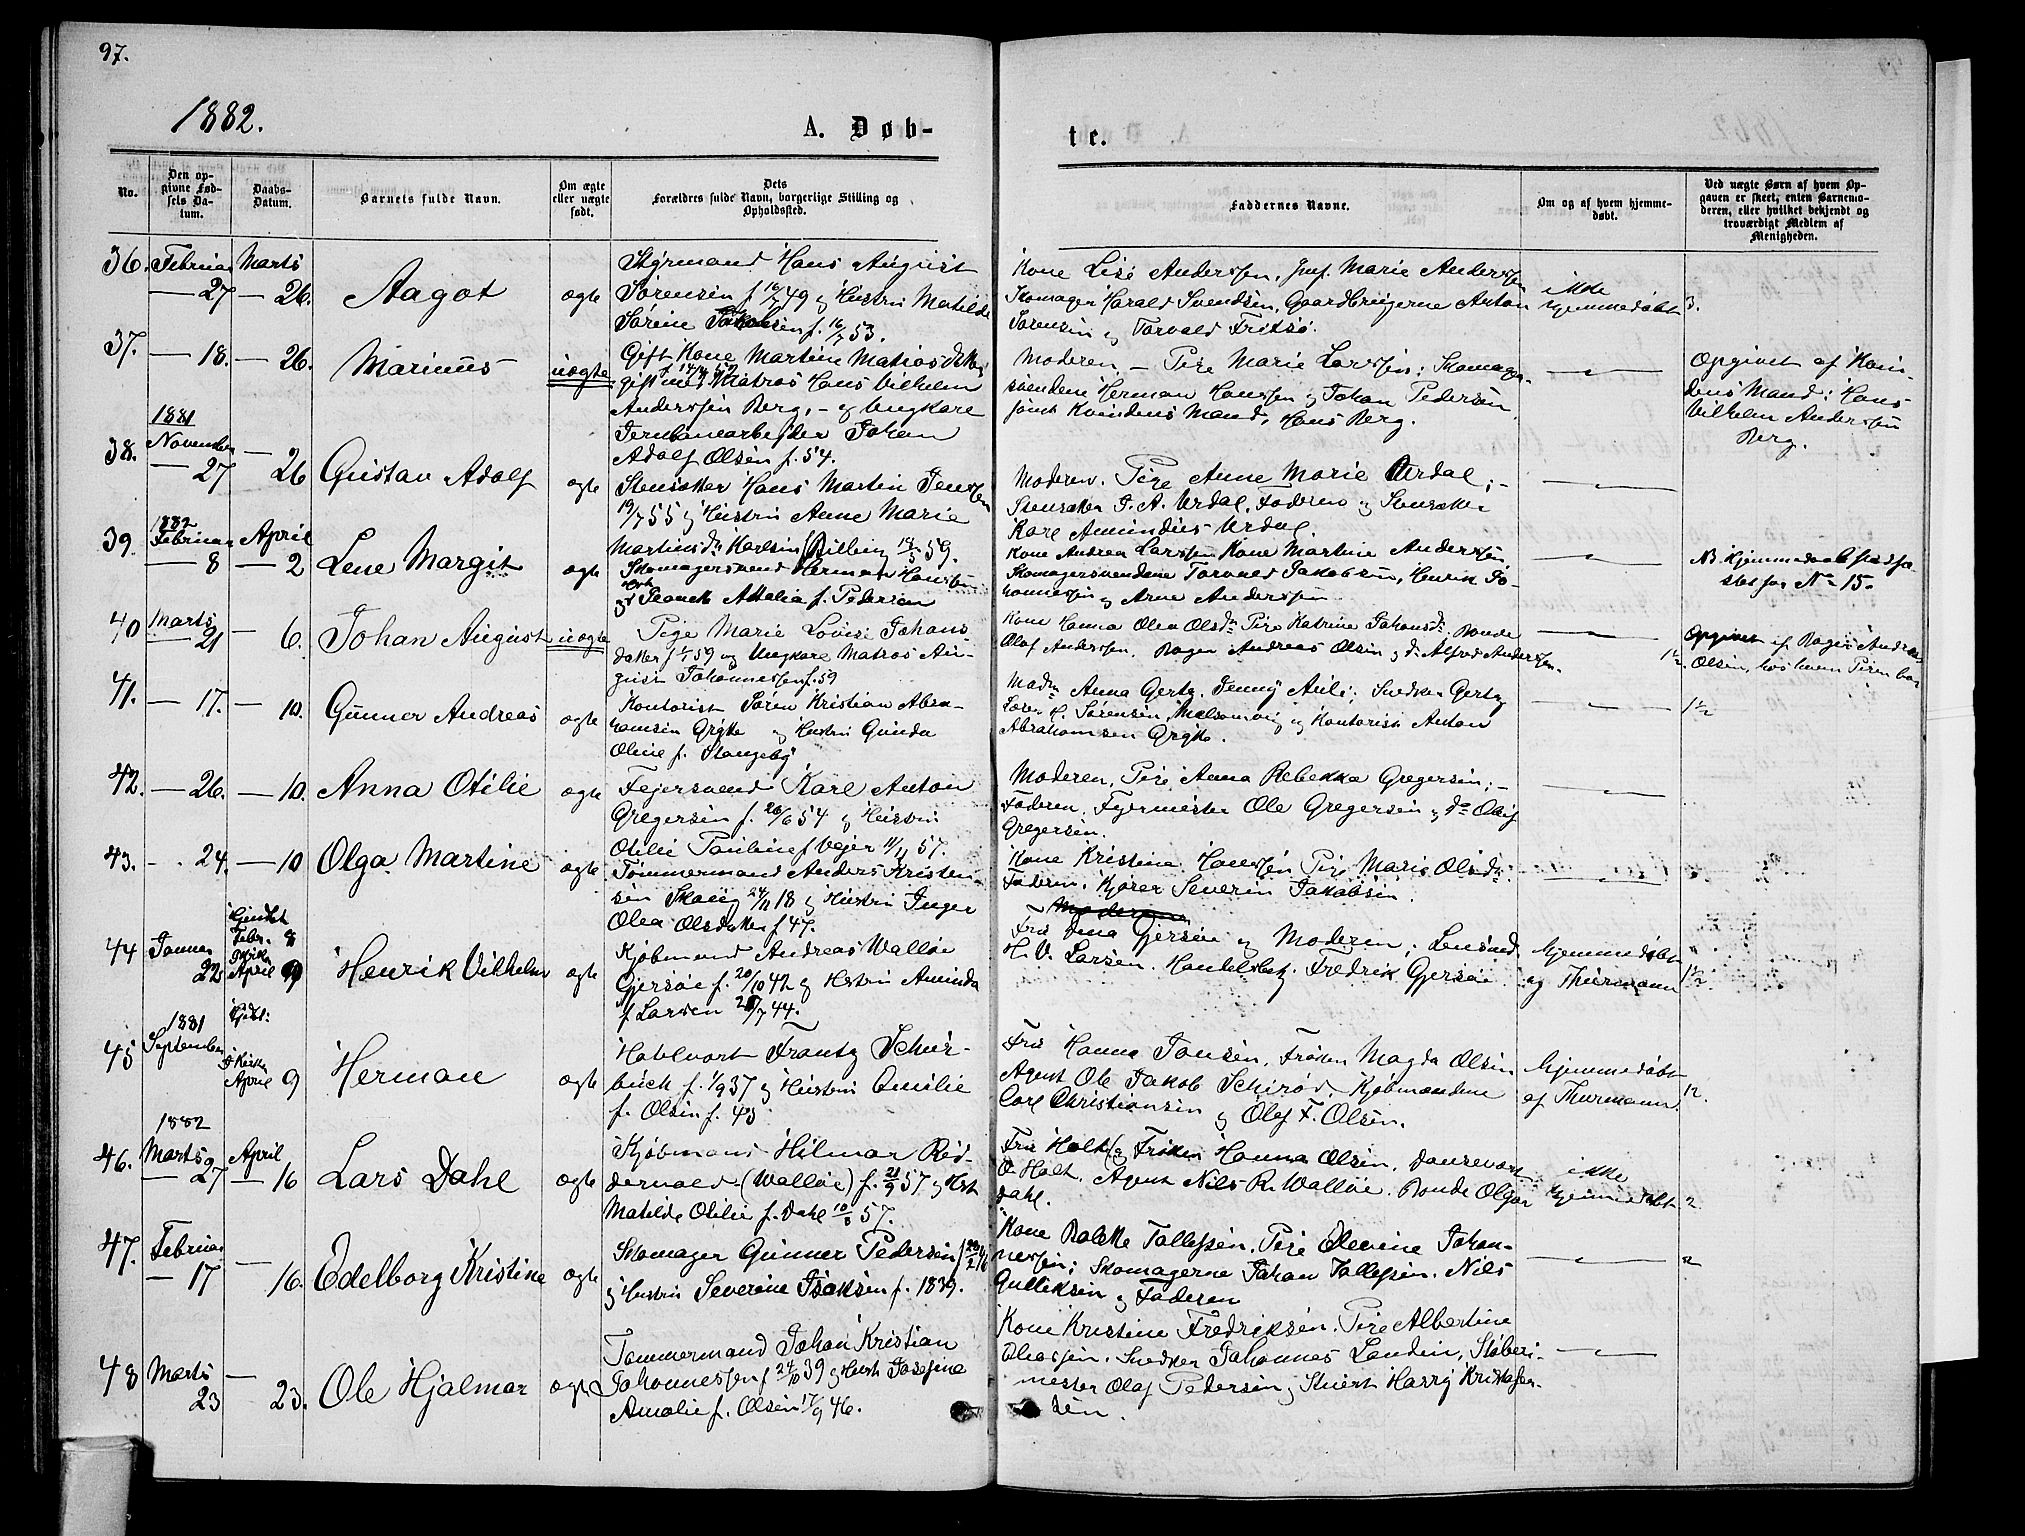 97.
1882.
A. Døb-
te.
No.
Den op-
givne Fød-
sels Da-
tum.
Daabs-
Datum.
Barnets fulde Navn.
Om ægte
eller uægte
født.
Dets
Forældres fulde Navn, borgerlige Stilling og
Opholdssted.
Faddernes Navne.
Om og af hvem hjemme-
døbt.
Ved uægte Børn af hvem Op-
gaven er skeet, enten Barnemo-
deren, eller hvilket bekjendt og
troværdigt Medlem af
Menigheden.
36. Februar 27 Marts 26. Aagot ægte
Styrmand Hans August
Sørensen f. 49 og Hustru Matilde
Sørine Jakobsen f. 16/7 53.
Kone Lise Anderssen, Marie Anderssen
Skomager Harald Svendsen, Gaardbrugerne Anton
Sørensen og Torvald Fritsø.
ikke
hjemmedøbt
3.
37. — 18. — 26. Marinus uægte
Gift Kone Martine Matiasdatter
gift med Matros Hans Vilhelm
Anderssen Berg, - og Ungkare
Jernbanearbejder Johan
Adolf Olsen f. 54.
Moderen — Pige Marie Larssen; Skomager-
svendene Herman Hanssen og Johan Pedersen
samt Kvindens Mand, Hans Berg.
Opgivet af Kvin-
dens Mand: Hans
Vilhelm Anderssen
Berg.
38. 1881 November 27 — 26 Gustav Adolf ægte
Stensætter Hans Martin Jenssen
19/7 55 og Hustru Anne Marie
Martinsdr Karlsen 59.
Moderen. Pige Anne Marie Urdal; -
Stensætter J. A. Urdal, Faderen og Stensætter
Karl Amundius Urdal.
39. 1882 Februar 8 April 2 Lene Margit ægte
Skomagersvend Herman Hanssen
og Hst. Attalia f. Pedersen
Kone Andrea Larssen Kone Martine Anderssen,
Skomagersvendene Torvald Jakobsen, Henrik Jo-
hannessen og Arne Anderssen
NB Hjemmedaab
No 15.
40 Marts 21 — 6. Johan August uægte
Pige Marie Lovise Johans-
datter f 59 og Ungkare Matros Au-
gust Johannessen f. 59
Kone Hanna Olea Olsdr Pige Katrine Johansdr. Bonde
Olaf Anderssen, Bager Andreas Olsen og do Alfred Anderssen.
1½
Opgivet af Bager Andreas
Olsen, hos hvem Pigen bor
41. — 17. — 10. Gunnar Andreas ægte
Kontorist Søren Kristian Abra-
hamsen Grytte og Hustru Gunda
Oline f. Stangeby
Madm Anna Gertz, Jenny Snedker Gertz
Søren H. Sørensen, Melsomvig og Kontorist Anton
Abrahamsen Grytte.
1½
42. — 26. — 10. Anna Otilie ægte
Fejersvend Karl Anton
Gregersen f. 26/6 54 og Hustru
Otilie Pauline f Vejer 11/11 57.
Moderen, Pige Anna Rebekka Gregersen; -
Faderen, Fejermester Ole Gregersen og do Oluf
Gregersen.
43. — 24. — 10 Olga Martine ægte
Tømmermand Anders Kristen-
sen Skaug 24/11 18 og Hustru Inger
Olea Olsdatter f 47.
Kone Kristine Hanssen Pige Marie Olsdr.
Faderen, Kjører Severin Jakobsen.
44 Januar 22 Febr. 8 Kirken April 9 Henrik Vilhelm ægte
Kjøbmand Andreas Walløe
Gjersøe f. 20/10 42 og Hstru Aminda
f Larsen 7 44.
Moderen
Fru Dina Gjersøe og Moderen; Lensmd
H. V. Larsen. Handelsbetj. Fredrik Gjersøe.
hjemmedøbt
og Thurmann
1½
45 1881 September Kirken April 9 Herman ægte
Hotelvert Frantz Schür-
buck f. 1/9 37 og Hustru Emilie
f. Olsen f. 45
Fru Hanna Jansen, Frøken Magda Olsen
Agent Ole Jakob Schirød, Kjøbmændene
Carl Christiansen og Olaf F. Olsen.
hjemmedøbt
af Thurmann.
12.
46. 1882 Marts 27 April 16 Lars Dahl ægte
Kjøbmand Hilmar Rid-
dervold (Walløe) f. 21/9 57 og Hst
Matilde Otilie f. Dahl 10/8 57.
Fru Holt og Frøken Hanna Olsen.
O. Holt. Agent Nils R. Walløe. Bonde
Dahl.
ikke
hjemmedøbt
2
47. Februar 17 — 16. Edelborg Kristine ægte
Skomager Gunner Pedersen
og Hustru Severine Isaksen f. 1839.
Kone Bolette Tollefsen. Pige Elevine Johan-
nessen; Skomagerne Johan Tollefsen. Nils
Gulliksen og Faderen
2
48 Marts 23 — 23. Ole Hjalmar ægte
Tømmermand Johan Kristian
Johannessen f 24/10 39 og Hust Josefine
Amalie f. Olsen 17/9 46.
Kone Kristine Fredriksen. Pige Albertine
Oleassen. Snedker Johannes Landin, Støberi-
mester Olaf Pedersen og Harry Kristofer-
sen.